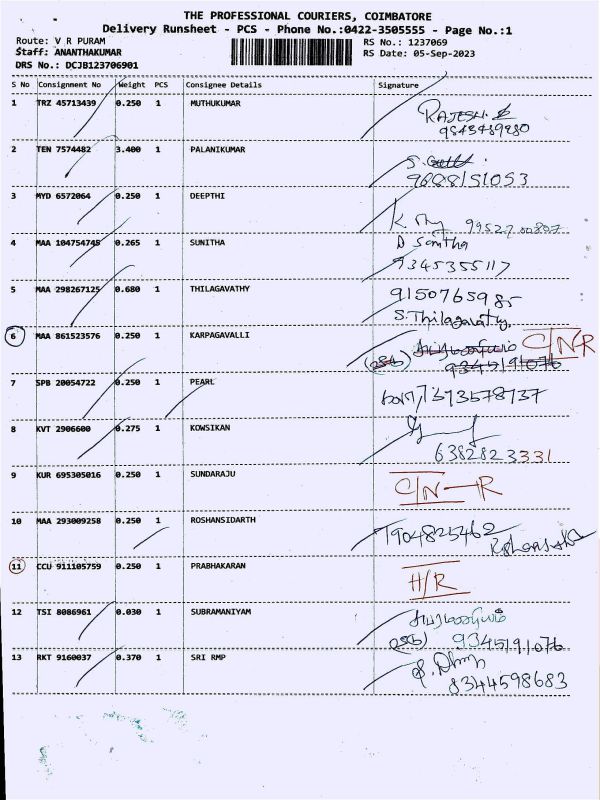 THE PROFESSIONAL COURIERS, COIMBATORE
Delivery Runsheet - PCS - Phone No.:0422-3505555 - Page No.:1
Route: V R PURAM
RS No.: 1237069
Staff: ANANTHAKUMAR
RS Date: 05-Sep-2023
DRS No.: DCJB123706901
S No Consignment No Weight PCS Consignee Details Signature
1 TRZ 45713439 0.250 1 MUTHUKUMAR RAJESH.
9843489980
2 TEN 7574482 3.400 1 PALANIKUMAR S.
9688151053
3 MYD 6572064 0.250 1 DEEPTHI K. 9952700807
4 MAA 104754745 0.265 1 SUNITHA D Sanitha
9345355117
5 MAA 298267125 0.680 1 THILAGAVATHY 9150765985
S. Thilagavathy
6 MAA 861523576 0.250 1 KARPAGAVALLI C/N-R
9345191076
7 SPB 20054722 0.250 1 PEARL 7373578737
8 KVT 2906600 0.275 1 KOWSIKAN
6382823331
9 KUR 695305016 0.250 1 SUNDARAJU C/N-R
10 MAA 293009258 0.250 1 ROSHANSIDARTH 7904825462
11 CCU 911105759 0.250 1 PRABHAKARAN H/R
12 TSI 8086961 0.030 1 SUBRAMANIYAM சுப்ரமணியம்
9345191076
13 RKT 9160037 0.370 1 SRI RMP
8344598683